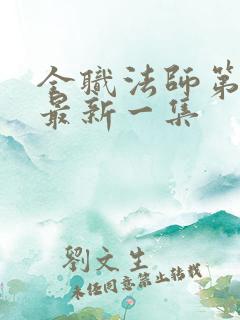 全職法師第
最新一集
劉文生
未经同意禁止转载